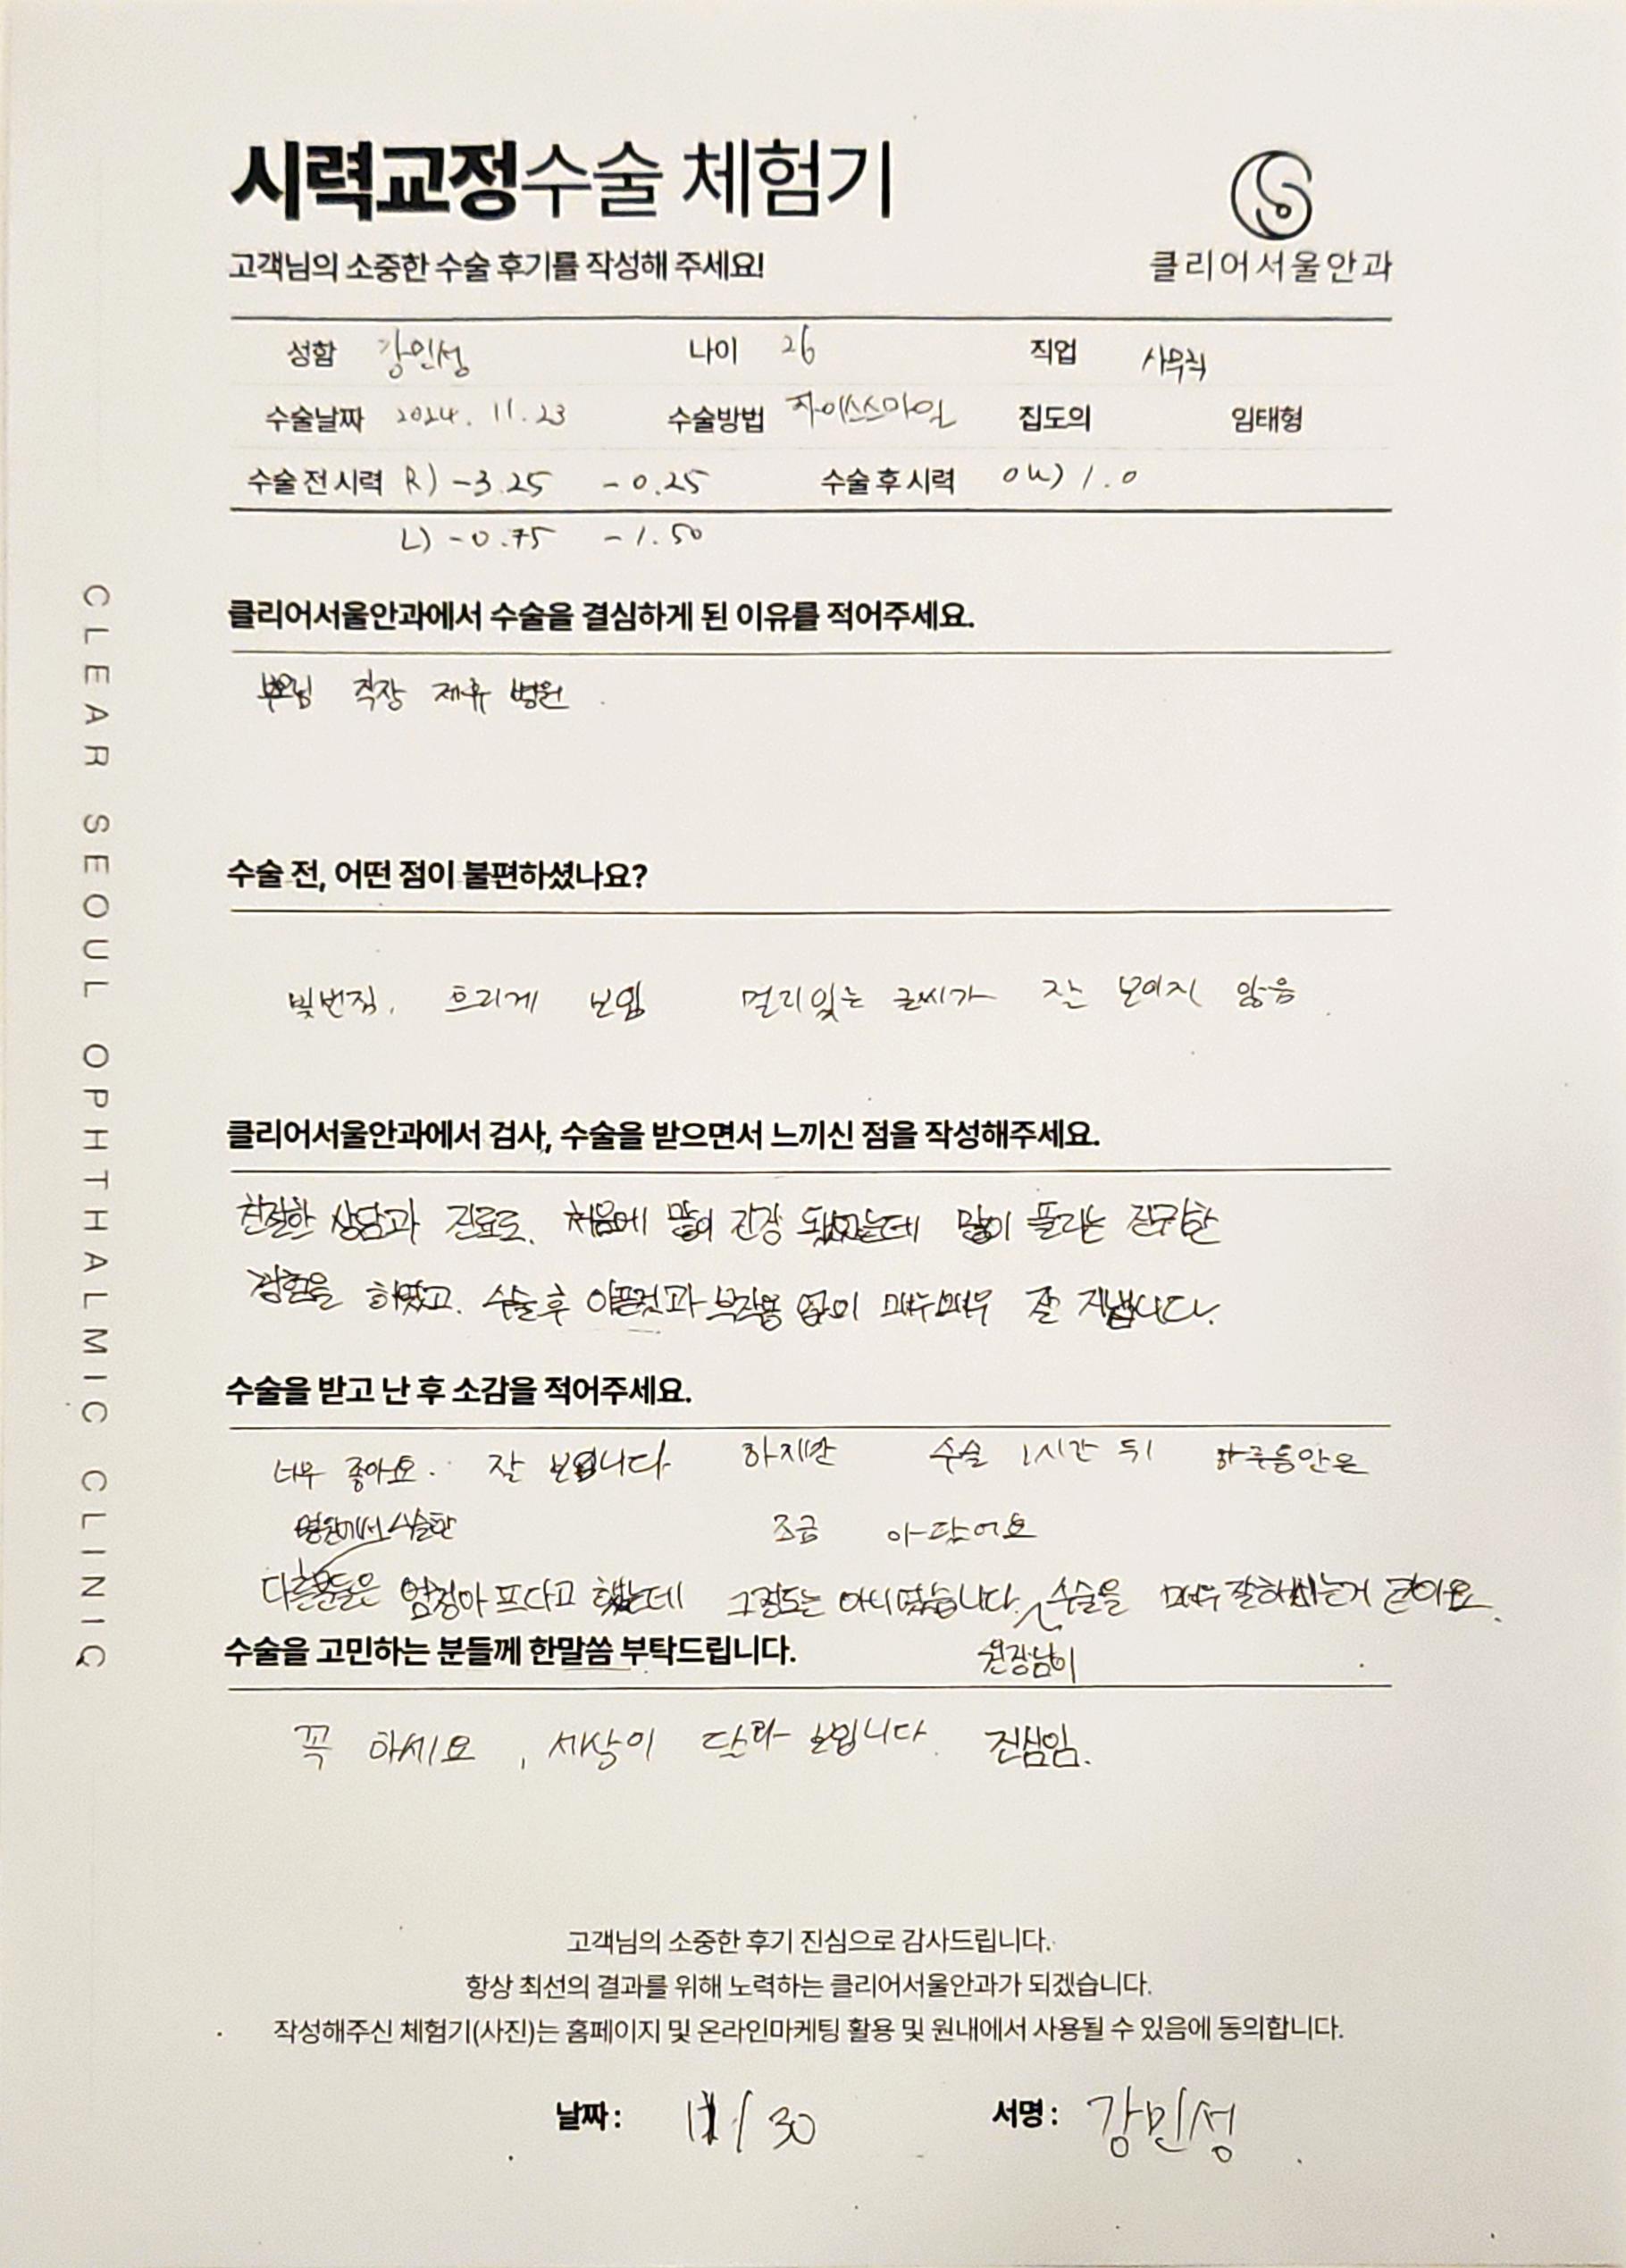 시력교정수술 체험기
고객님의 소중한 수술 후기를 작성해 주세요!
클리어서울안과
성함 강민성 나이 26 직업 사무직
수술날짜 2024. 11. 23 수술방법 자이스스마일 집도의 임태형
수술 전 시력 R) -3.25 -0.25 수술 후 시력 OU) 1.0
L) -0.75 -1.50
클리어서울안과에서 수술을 결심하게 된 이유를 적어주세요.
부모님 직장 제휴 병원.
수술 전, 어떤 점이 불편하셨나요?
빛번짐, 흐리게 보임 멀리있는 글씨가 잘 보이지 않음.
클리어서울안과에서 검사, 수술을 받으면서 느끼신 점을 작성해주세요.
친절한 상담과 진료로. 처음에 많이 긴장 됐었는데 많이 풀리는 진귀한
경험을 하였고. 수술후 아픈것과 부작용 없이 매우매우 잘 지냅니다.
수술을 받고 난 후 소감을 적어주세요.
너무 좋아요. 잘 보입니다 하지만 수술 1시간 뒤 하루동안은
조금 아팠어요
병원에서 수술한
다른분들은 엄청아프다고 했는데 그정도는 아니였습니다. 수술을 매우 잘하시는거 같아요.
원장님이
수술을 고민하는 분들께 한말씀 부탁드립니다.
꼭 하세요, 세상이 달라 보입니다. 진심임.
고객님의 소중한 후기 진심으로 감사드립니다.
항상 최선의 결과를 위해 노력하는 클리어서울안과가 되겠습니다.
작성해주신 체험기(사진)는 홈페이지 및 온라인마케팅 활용 및 원내에서 사용될 수 있음에 동의합니다.
날짜: 11/30 서명: 강민성
CLEAR SEOUL OPHTHALMIC CLINIC